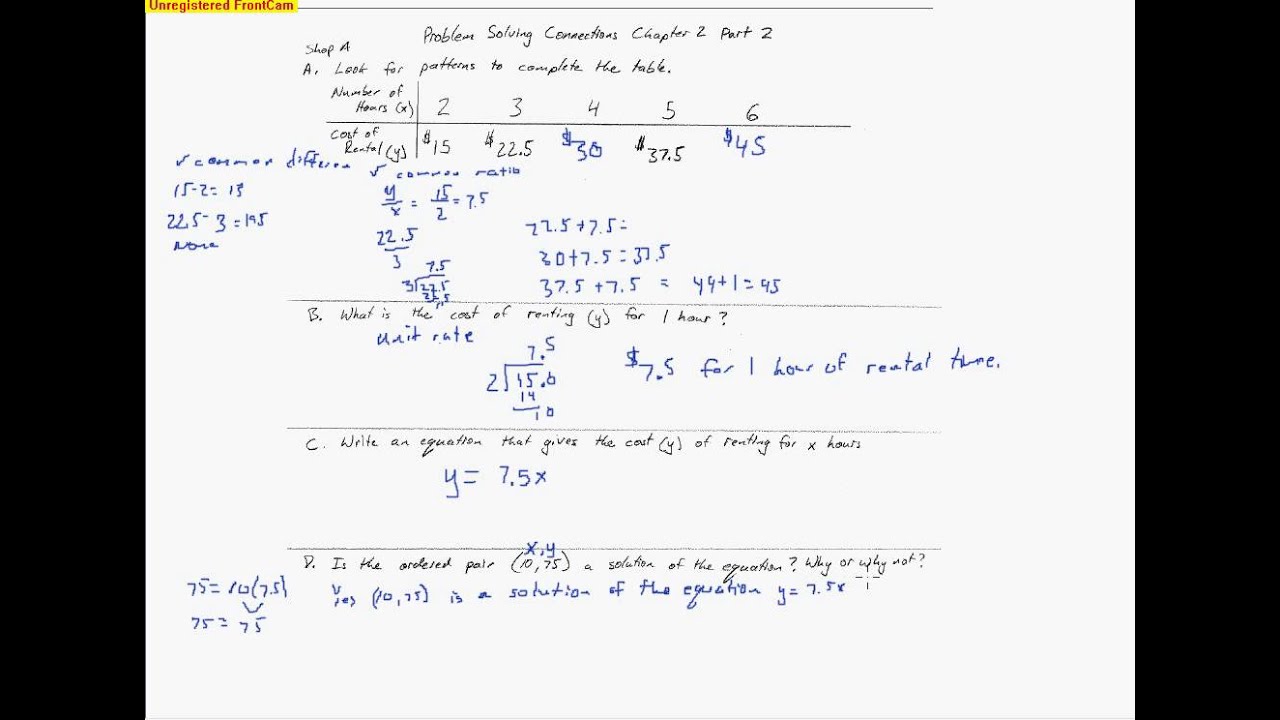 Unregistered FrontCam
Problem Solving Connections Chapter 2 Part 2
Shop A
A. Look for patterns to complete the table.
Number of Hours (x) 2 3 4 5 6
Cost of Rental (y) $15 $22.5 $30 $37.5 $45
√ common differen √ common ratio
15-2= 13
22.5- 3 =19.5
None
y/x = 15/2 = 7.5
22.5/3
7.5
3 22.5
22.5
22.5+7.5=
30+7.5=37.5
37.5+7.5 = 44+1=45
B. What is the cost of renting (y) for 1 hour?
unit rate
7.5
2 15.0
14
10
$7.5 for 1 hour of rental time.
C. Write an equation that gives the cost (y) of renting for x hours
y= 7.5x
x,y
D. Is the ordered pair (10,75) a solution of the equation? Why or why not?
75=10(7.5)
75= 75
yes (10,75) is a solution of the equation y= 7.5x